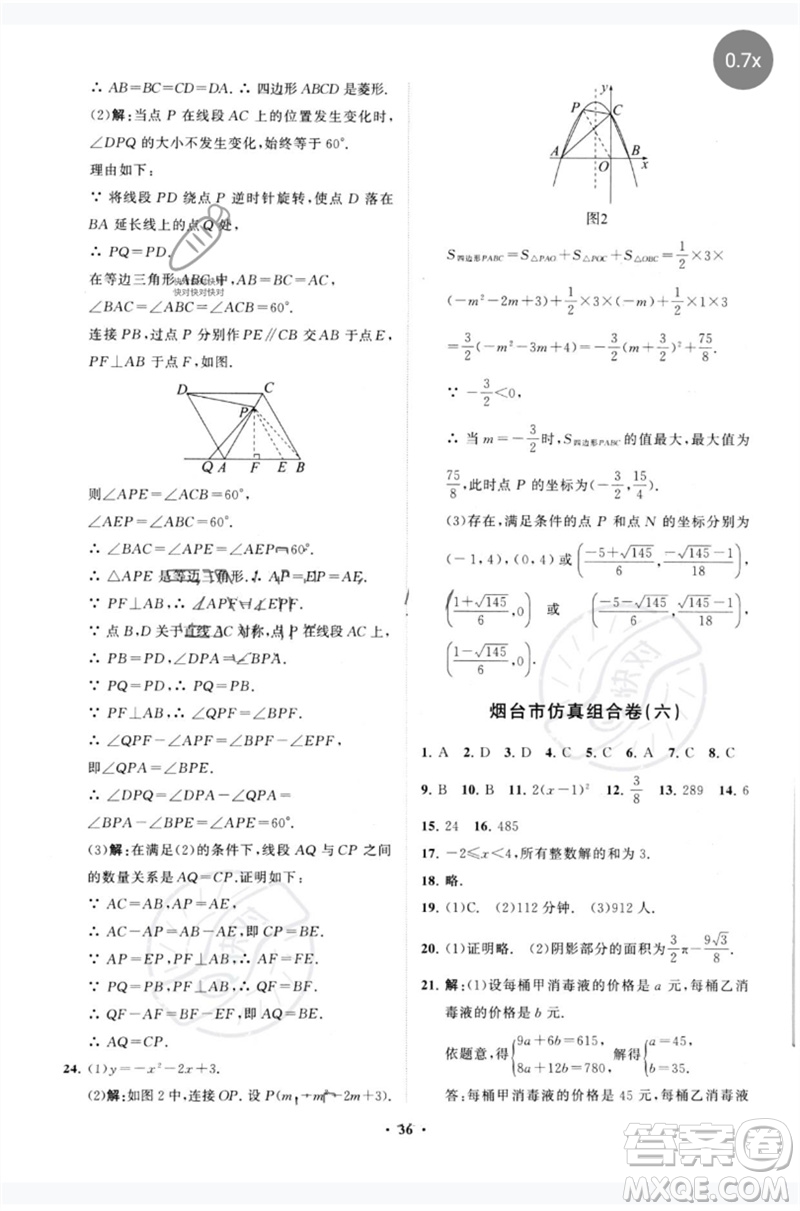 0.7x
∴ AB=BC=CD=DA. ∴ 四边形 ABCD 是菱形.
(2)解:当点 P 在线段 AC 上的位置发生变化时,
∠DPQ 的大小不发生变化,始终等于 60°.
理由如下:
∵ 将线段 PD 绕点 P 逆时针旋转,使点 D 落在
BA 延长线上的点 Q 处,
∴ PQ=PD.
在等边三角形 ABC 中,
快对快对快对
快对快对快对
∠BAC=∠ABC=∠ACB=60°.
连接 PB,过点 P 分别作 PE∥CB 交 AB 于点 E,
PF⊥AB 于点 F,如图.
D C
P
Q A F E B
则∠APE=∠ACB=60°,
∠AEP=∠ABC=60°.
∴ ∠BAC=∠APE=∠AEP=60°.
∴ △APE 是等边三角形. ∴ AP=EP=AE.
∵ PF⊥AB, ∴ AF=FE.
∵ 点 B,D 关于直线 AC 对称,点 P 在线段 AC 上,
∴ PB=PD,∠DPA=∠BPA.
∵ PQ=PD,∴ PQ=PB.
∴ ∠QPF=∠BPF.
∴ ∠QPF-∠APF=∠BPF-∠EPF,
即∠QPA=∠BPE.
∴ ∠DPQ=∠DPA-∠QPA=
∠BPA-∠BPE=∠APE=60°.
(3)解:在满足(2)的条件下,线段 AQ 与 CP 之间
的数量关系是 AQ=CP.证明如下:
∵ AC=AB,AP=AE,
∴ AC-AP=AB-AE,即 CP=BE.
∵ AP=EP,PF⊥AB,∴ AF=FE.
∵ PQ=PB,PF⊥AB,∴ QF=BF.
∴ QF-AF=BF-EF,即 AQ=BE.
∴ AQ=CP.
24. (1)y=-x²-2x+3.
(2)解:如图 2 中,连接 OP. 设 P(m,-m²-2m+3).
y
P C
A O B x
图2
S四边形PABC=S△PAO+S△POC+S△OBC=1/2×3×
(-m²-2m+3)+1/2×3×(-m)+1/2×1×3
=3/2(-m²-3m+4)=-3/2(m+3/2)²+75/8.
∵ -3/2<0,
∴ 当 m=-3/2时,S四边形PABC的值最大,最大值为
75/8,此时点 P 的坐标为(-3/2,15/4).
(3)存在,满足条件的点 P 和点 N 的坐标分别为
(-1,4),(0,0) 或 ((-5+√145)/6,(-√145-1)/18),
((1+√145)/6,0) 或 ((-5-√145)/6,(√145-1)/18),
((1-√145)/6,0).
烟台市仿真组合卷(六)
1. A 2. D 3. D 4. C 5. C 6. C 7. C 8. C
9. B 10. B 11. 2(x-1)² 12. 3/8 13. 289 14. 6
15. 24 16. 485
17. -2≤x<4,所有整数解的和为 3.
18. 略.
19. (1)C. (2)112 分钟. (3)912 人.
20. (1)证明略. (2)阴影部分的面积为3/2π-9√3/8.
21. 解:(1)设每桶甲消毒液的价格是 a 元,每桶乙消
毒液的价格是 b 元.
依题意,得{9a+6b=615, 8a+12b=780, 解得{a=45, b=35.
答:每桶甲消毒液的价格是 45 元,每桶乙消毒液
• 36 •
快对
快对
答案卷
MXQE.COM